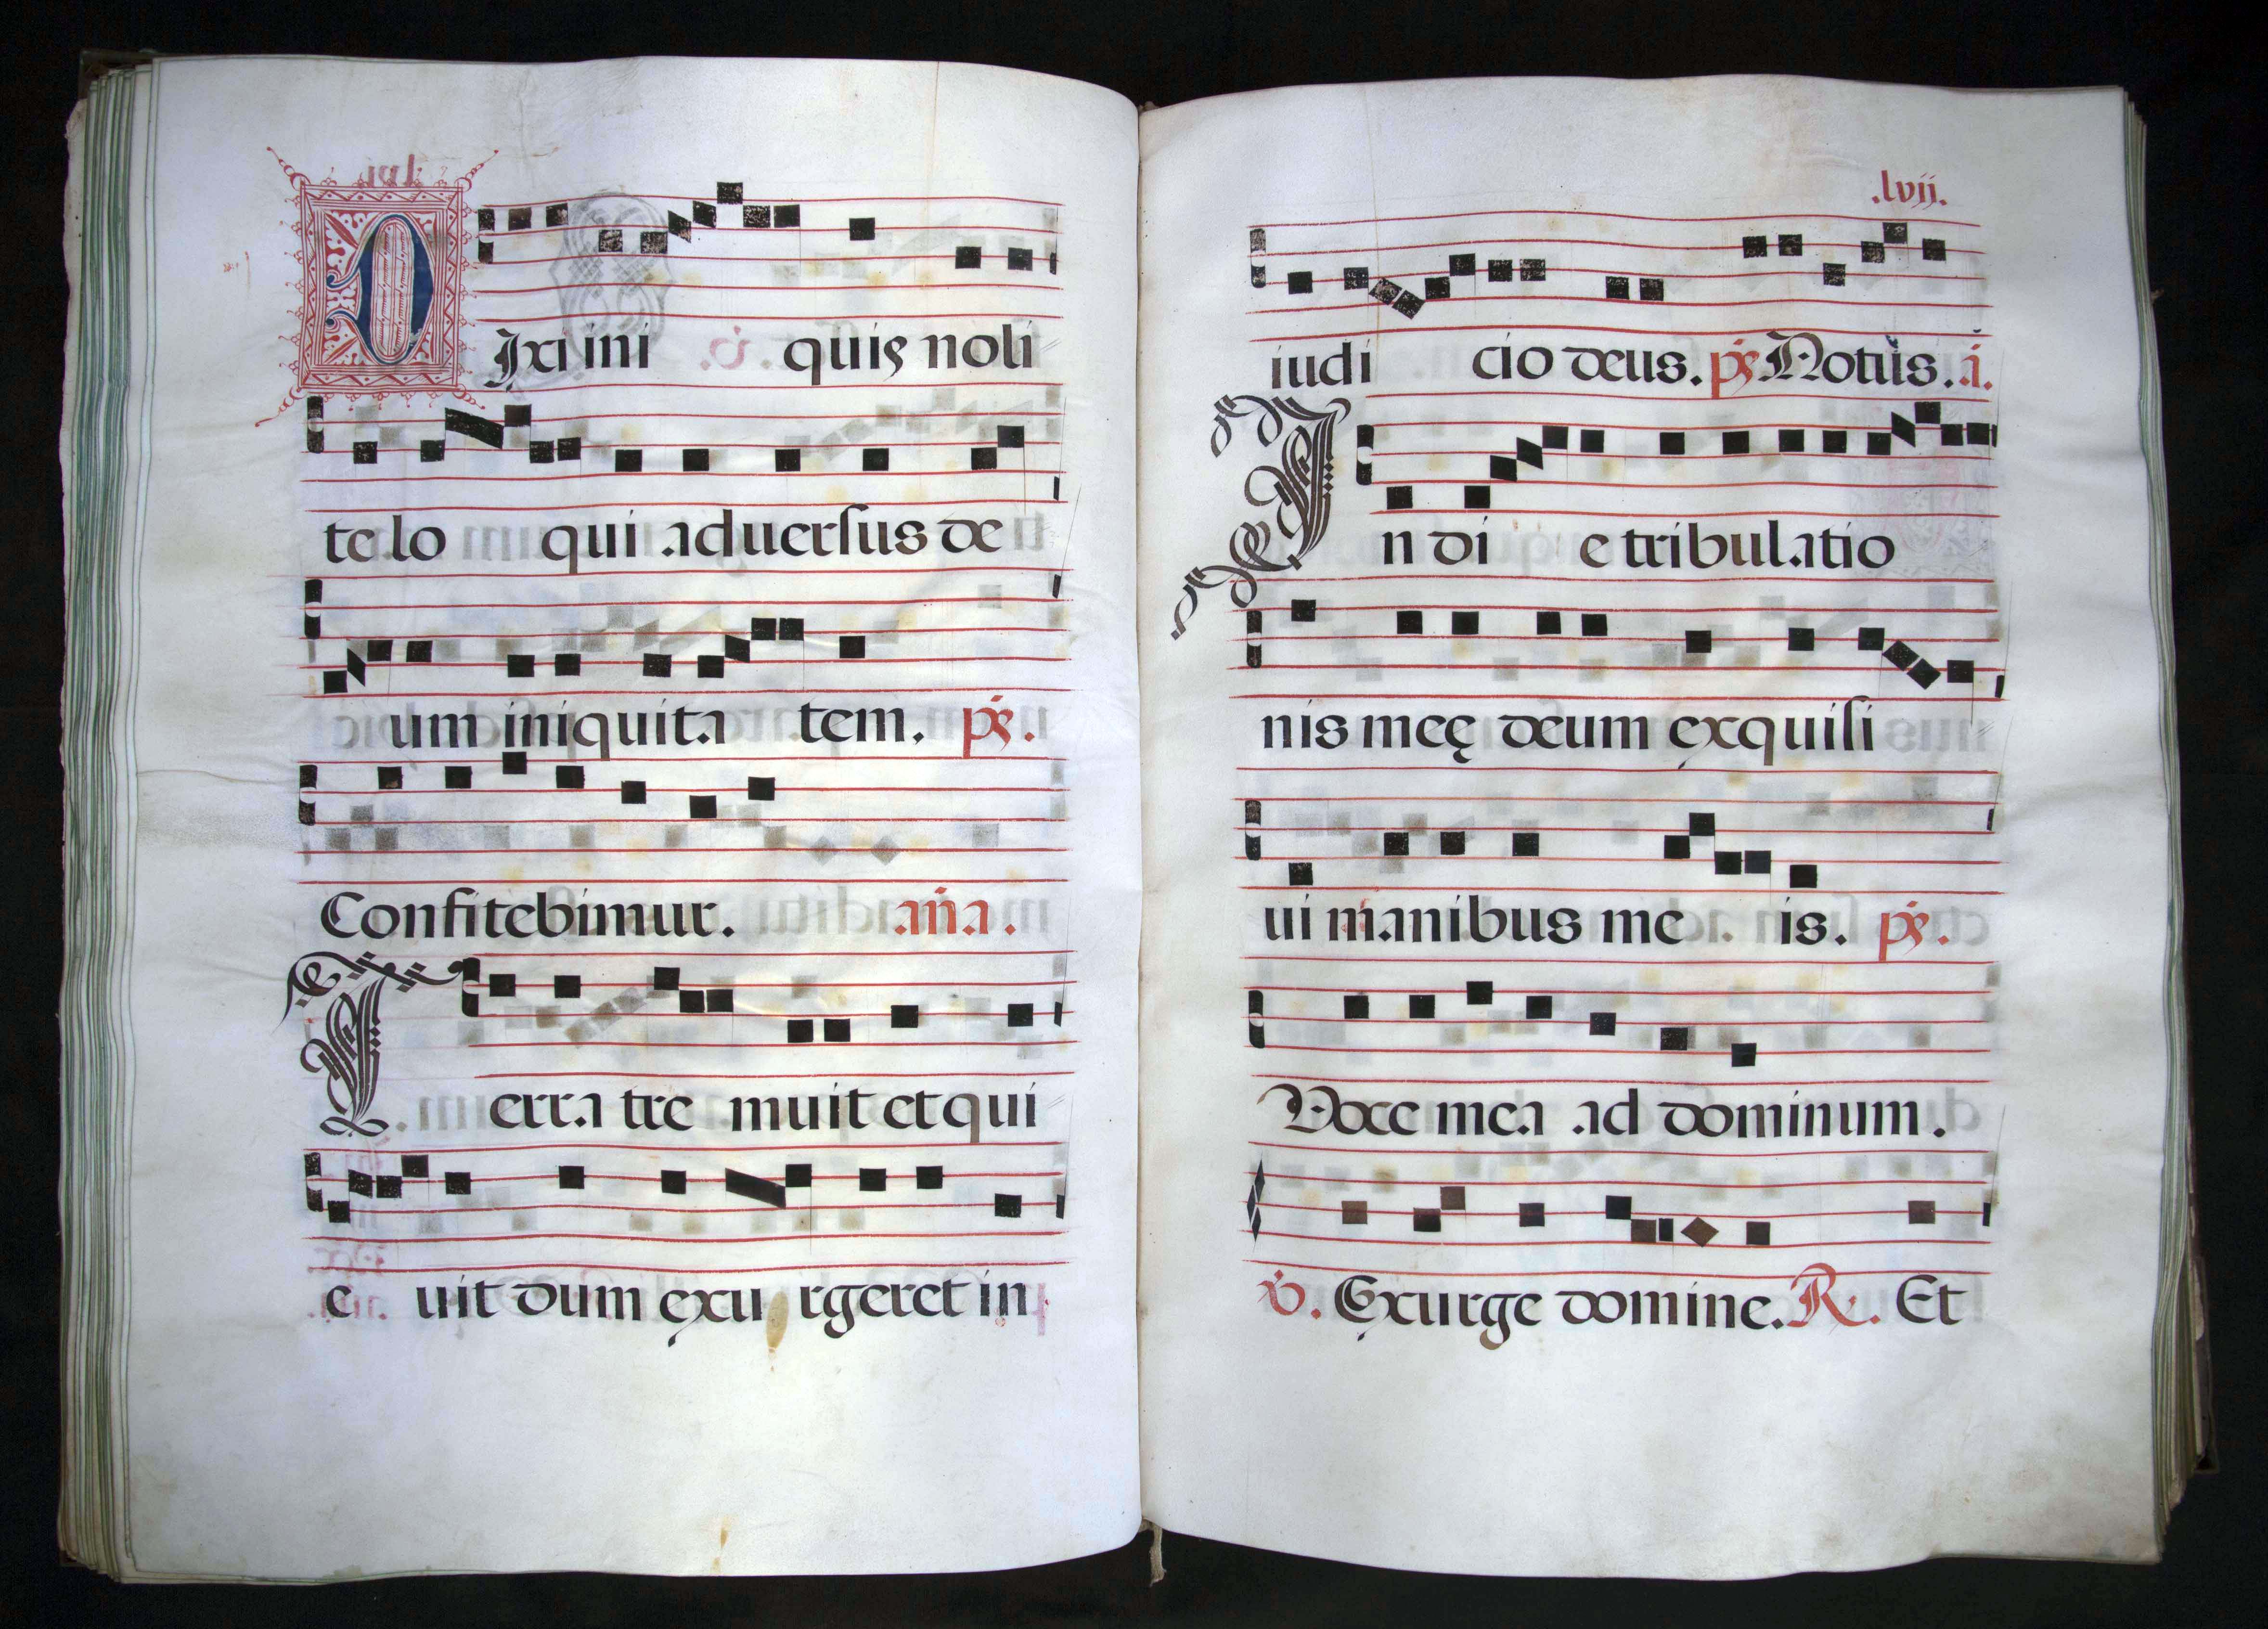 DIxi ini quis noli
te lo qui aduerſus de
um iniquita tem. ps.
Confitebimur. aña.
Terra tre muit et qui
e uit dum exu rgeret in
.lvij.
iudi cio deus. ps Notus. a.
In di e tribulatio
nis meę deum exquiſi
ui manibus me is. ps.
Voce mea ad dominum.
V. Exurge domine. R. Et